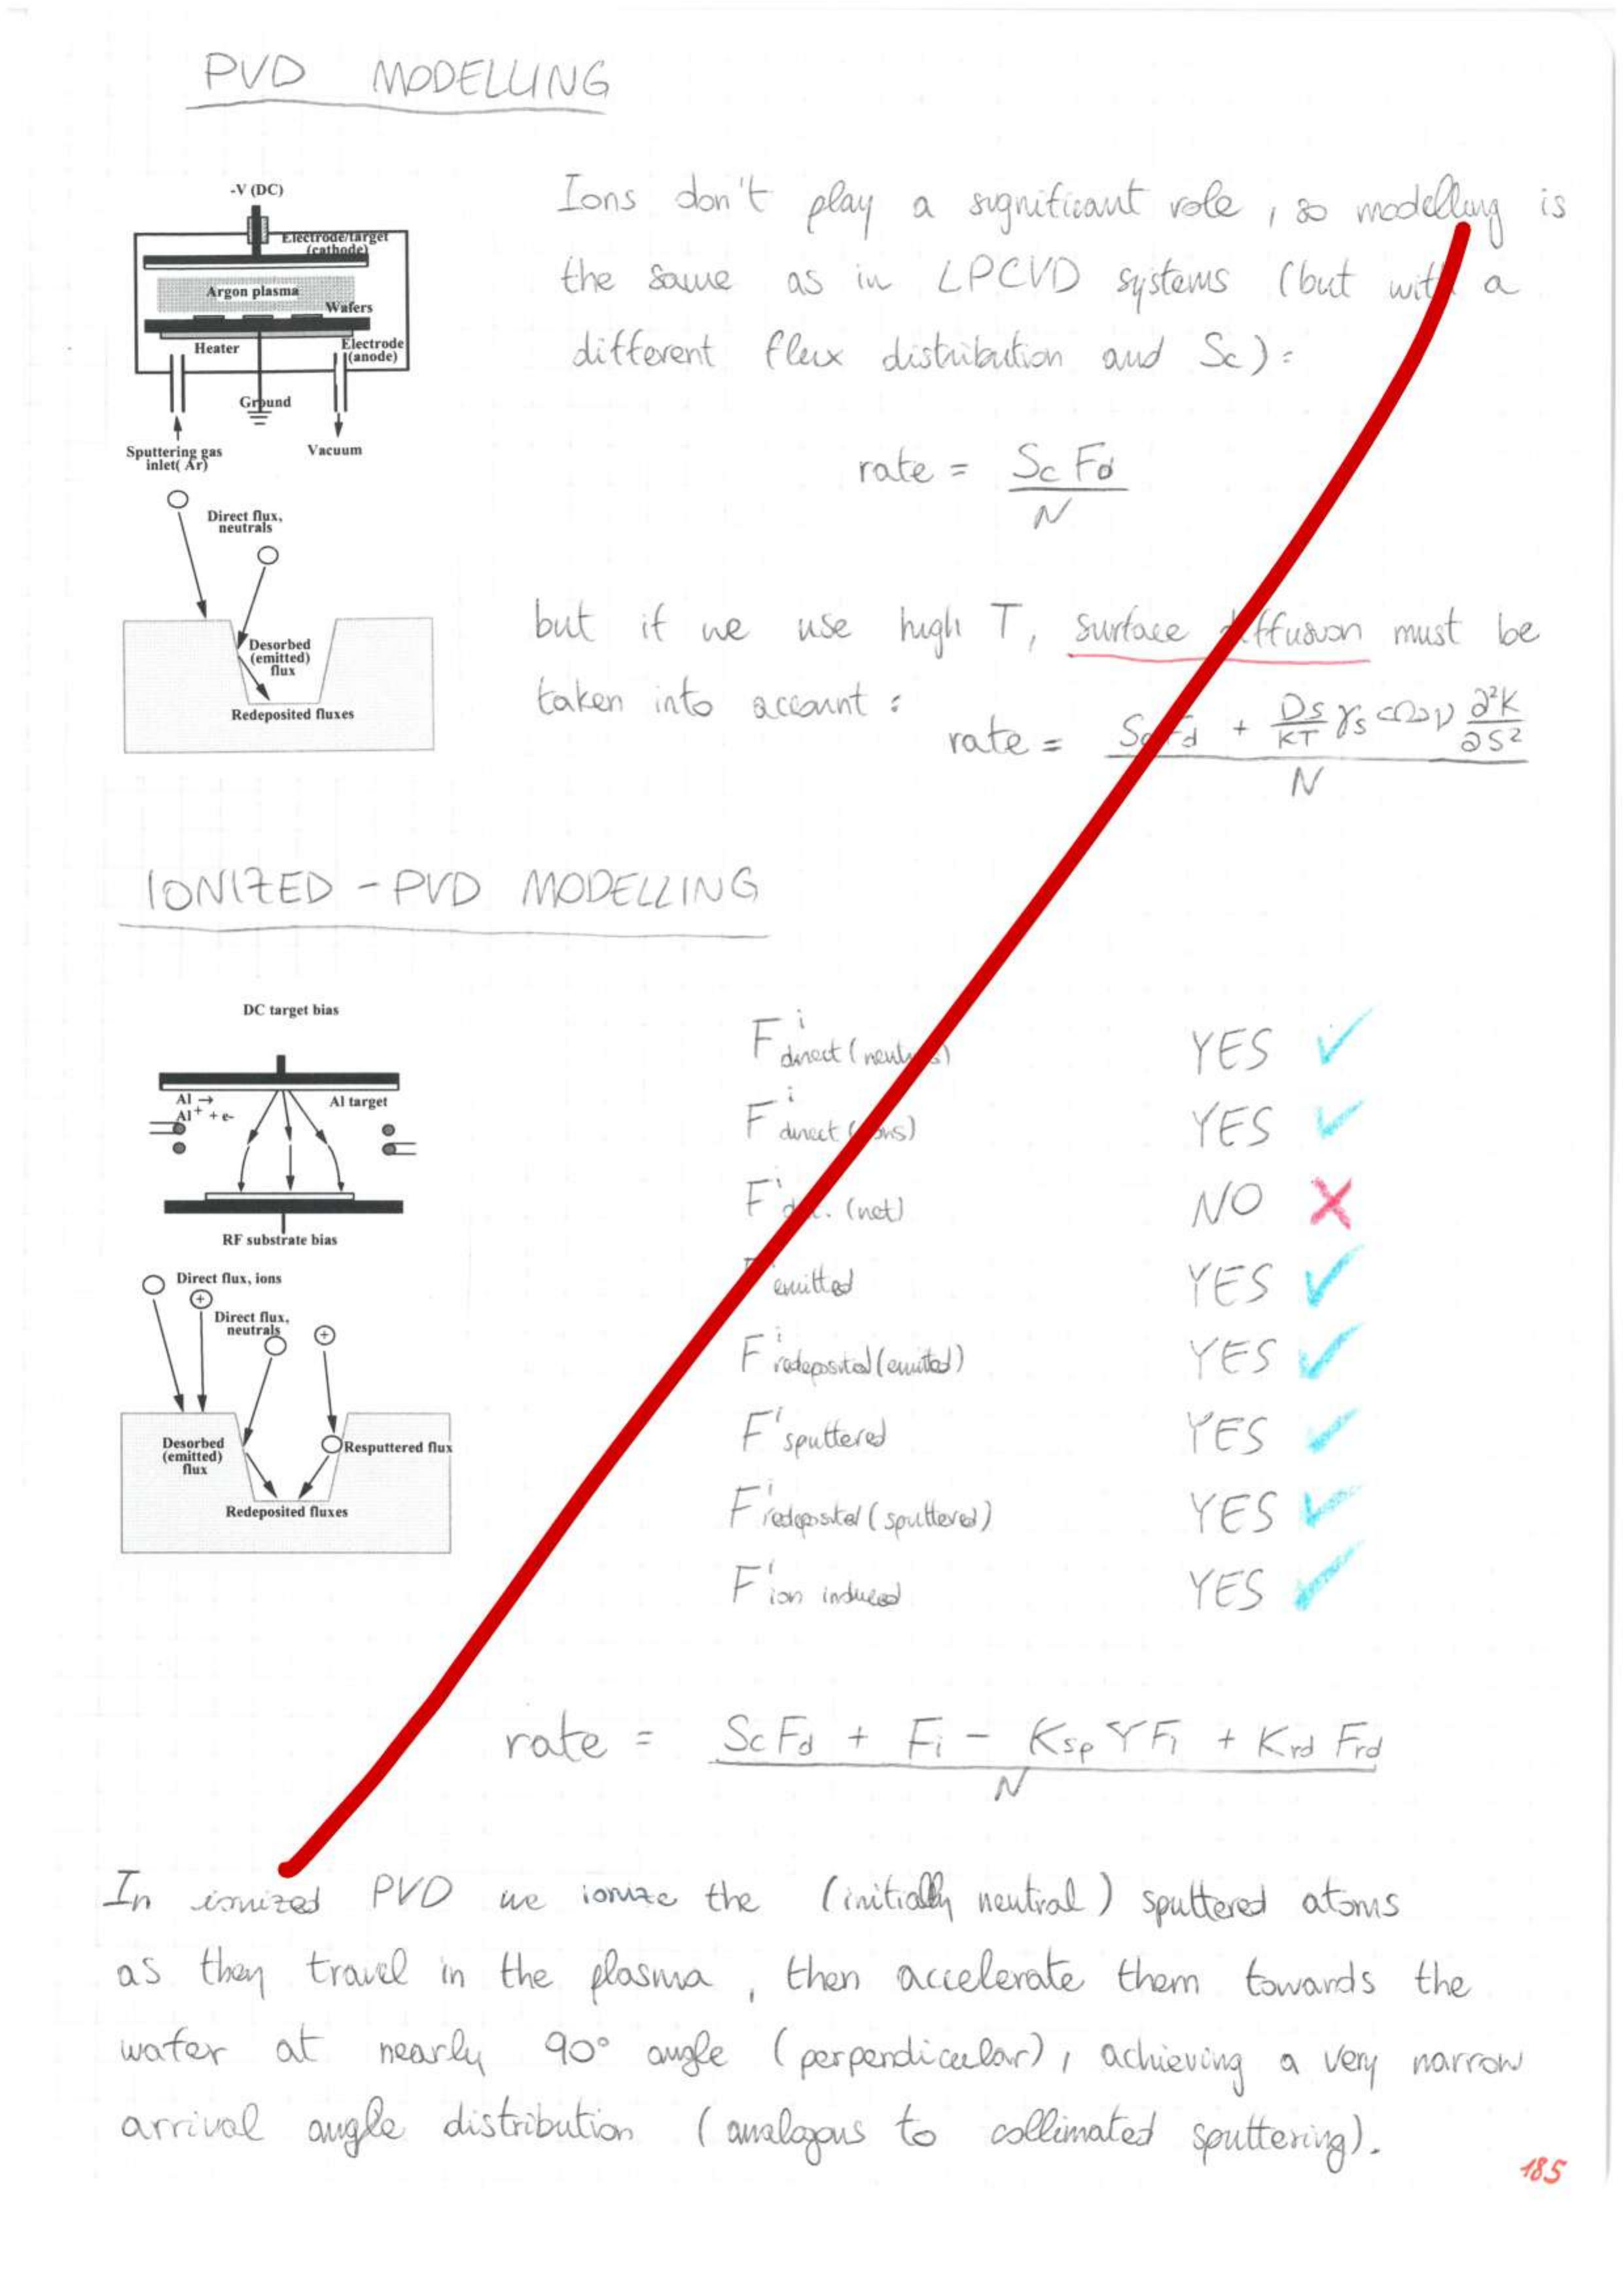 PVD MODELLING
-V (DC)
Electrode/target
(cathode)
Argon plasma
Wafers
Heater
Electrode
(anode)
Ground
Sputtering gas
inlet( Ar)
Vacuum
Ions don't play a significant role, so modelling is
the same as in LPCVD systems (but with a
different flux distribution and Sc):
rate = Sc Fd / N
Direct flux,
neutrals
Desorbed
(emitted)
flux
Redeposited fluxes
but if we use high T, surface diffusion must be
taken into account :
rate = Sc Fd + Ds/KT γs ∂²K/∂S² / N
IONIZED - PVD MODELLING
DC target bias
Al →
Al+ + e-
Al target
RF substrate bias
Direct flux, ions
Direct flux,
neutrals
Desorbed
(emitted)
flux
Resputtered flux
Redeposited fluxes
F^i direct (neutrals) YES ✓
F^i direct (ions) YES ✓
F^i (net) NO ✗
emitted YES ✓
F^i redeposited (emitted) YES ✓
F^i sputtered YES ✓
F^i redeposited (sputtered) YES ✓
F^i ion induced YES ✓
rate = Sc Fd + Fi - Ksp Y Fi + Krd Frd / N
In ionized PVD we ionize the (initially neutral) sputtered atoms
as they travel in the plasma, then accelerate them towards the
wafer at nearly 90° angle (perpendicular), achieving a very narrow
arrival angle distribution (analogous to collimated sputtering).
185